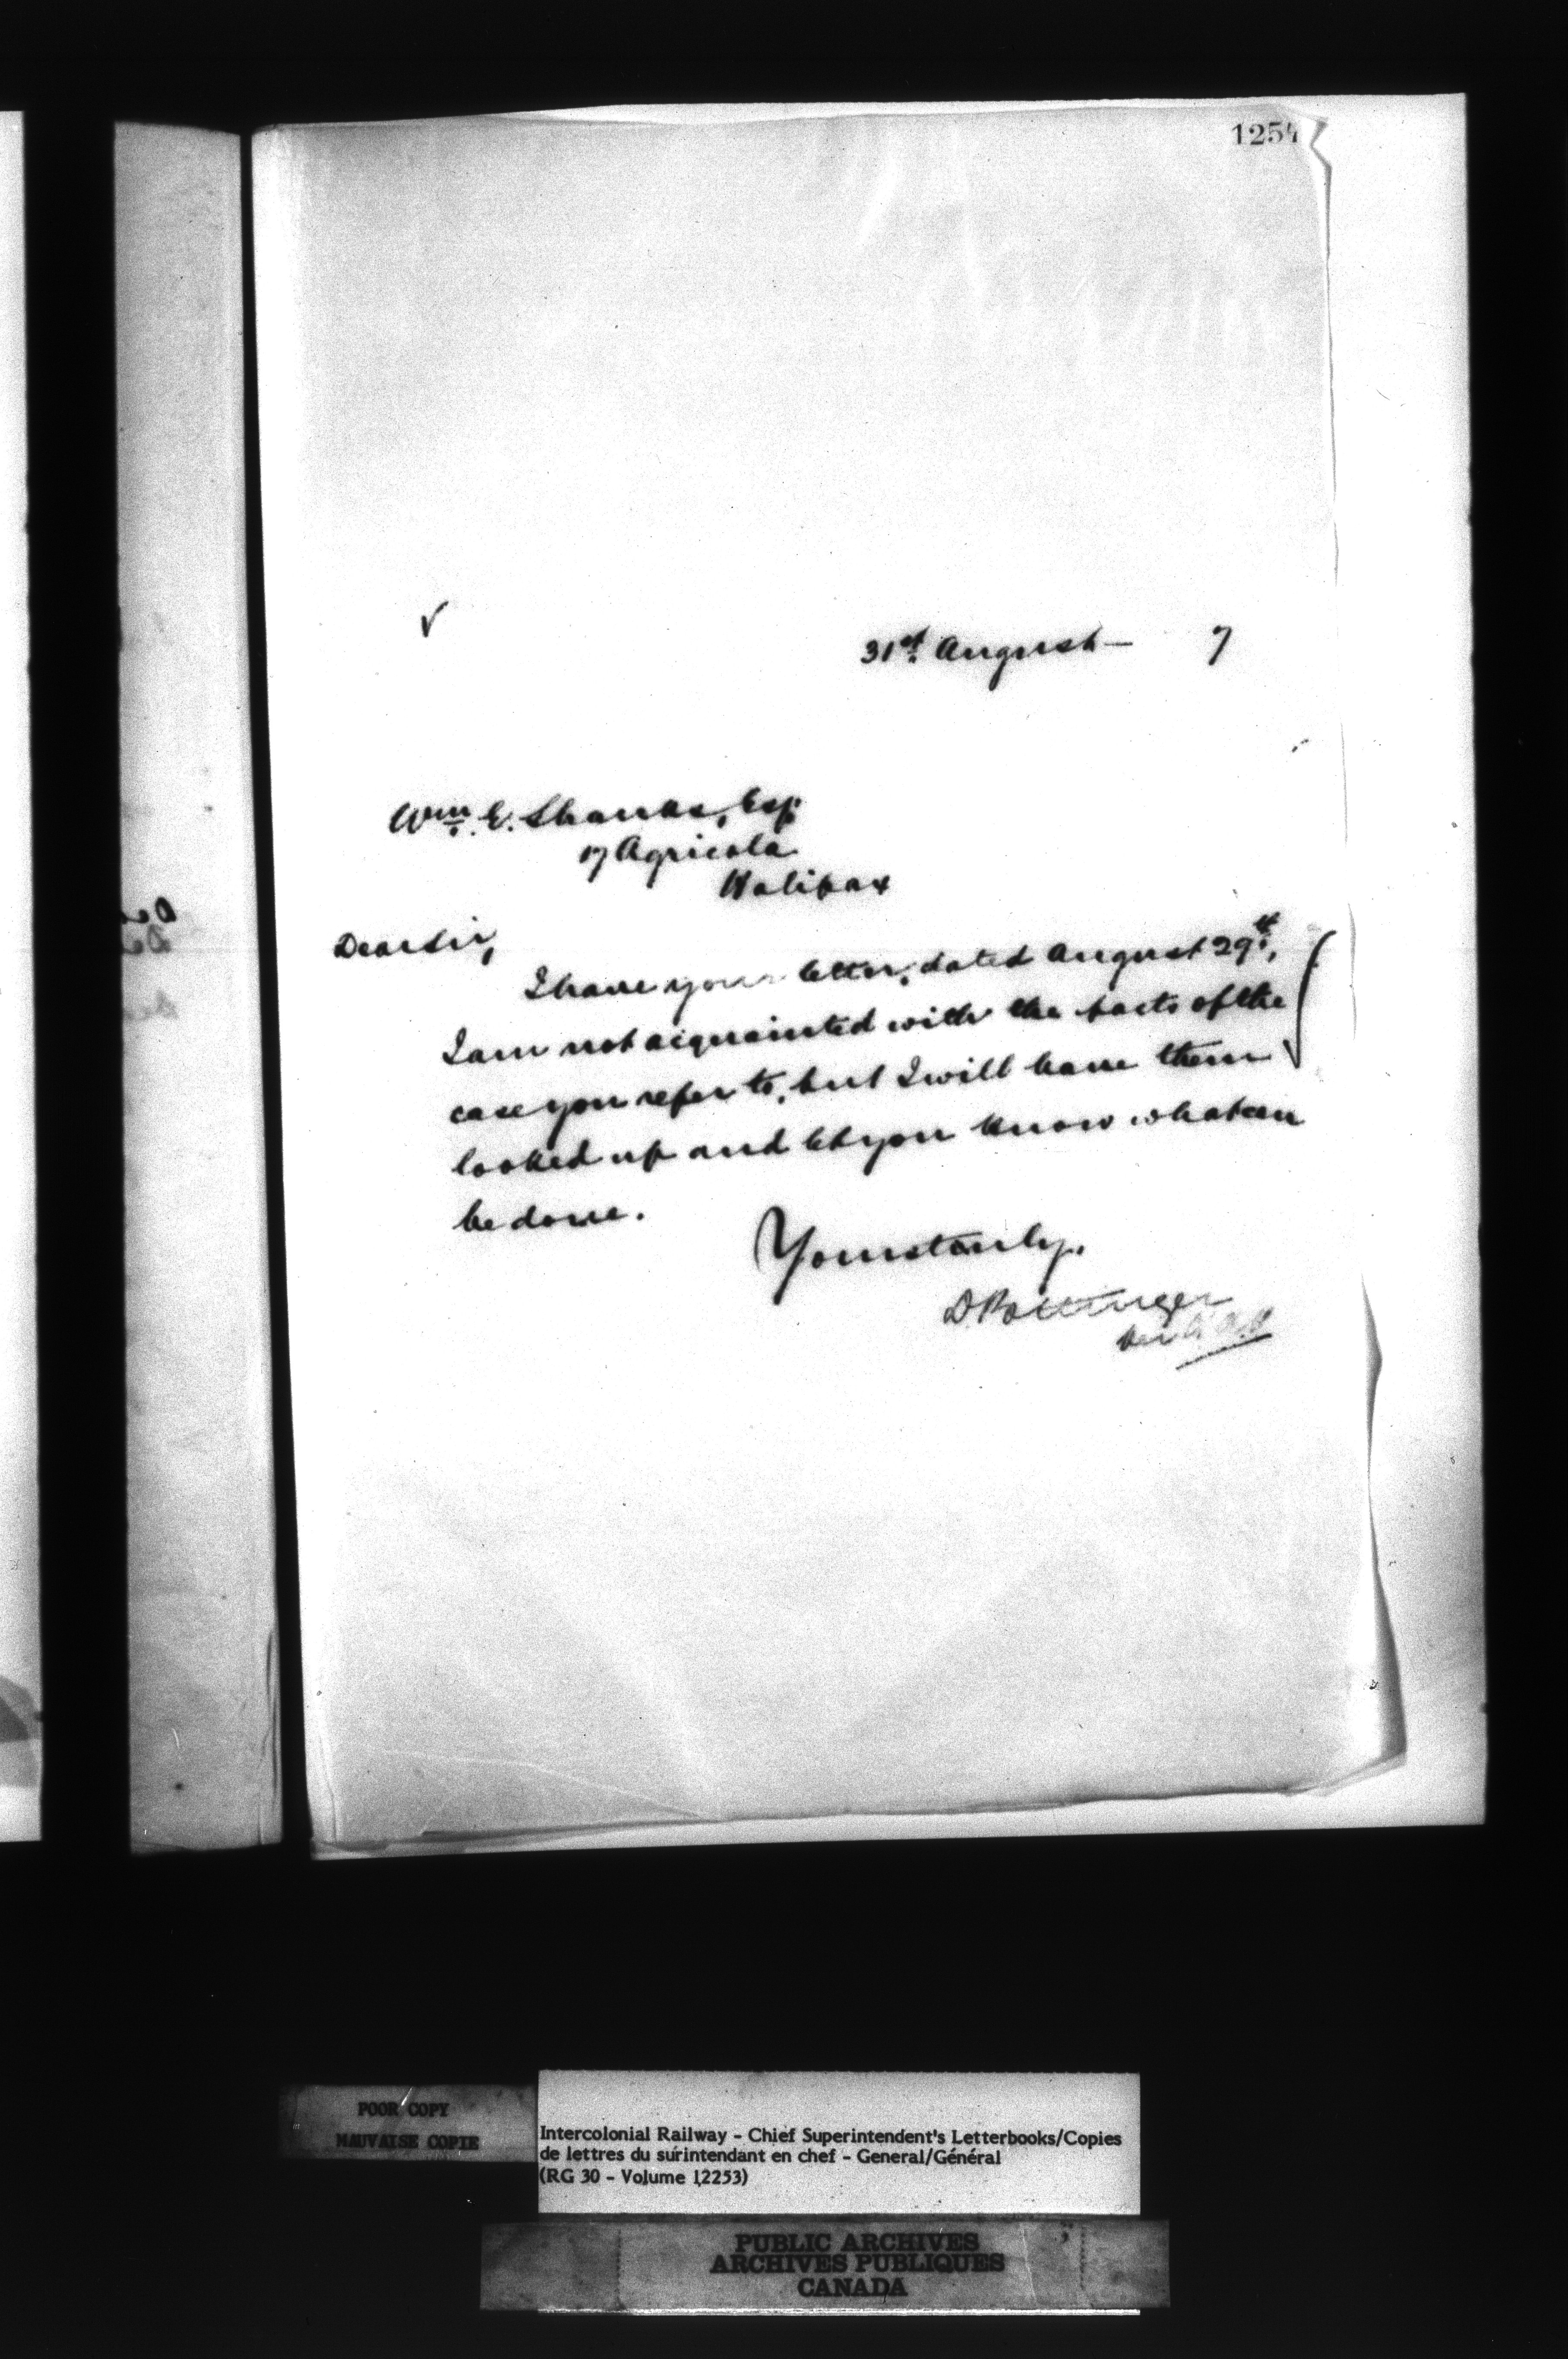 1254
31st August — 7
Wm. E. Shanks, Esq.
17 Agricola
Halifax
Dear Sir,
I have your letter, dated August 29th,
I am not acquainted with the facts of the
case you refer to, but I will have them
looked up and let you know what can
be done.
Yours truly,
D. Pottinger
POOR COPY
MAUVAISE COPIE
Intercolonial Railway - Chief Superintendent's Letterbooks/Copies
de lettres du surintendant en chef - General/Général
(RG 30 - Volume 12253)
PUBLIC ARCHIVES
ARCHIVES PUBLIQUES
CANADA